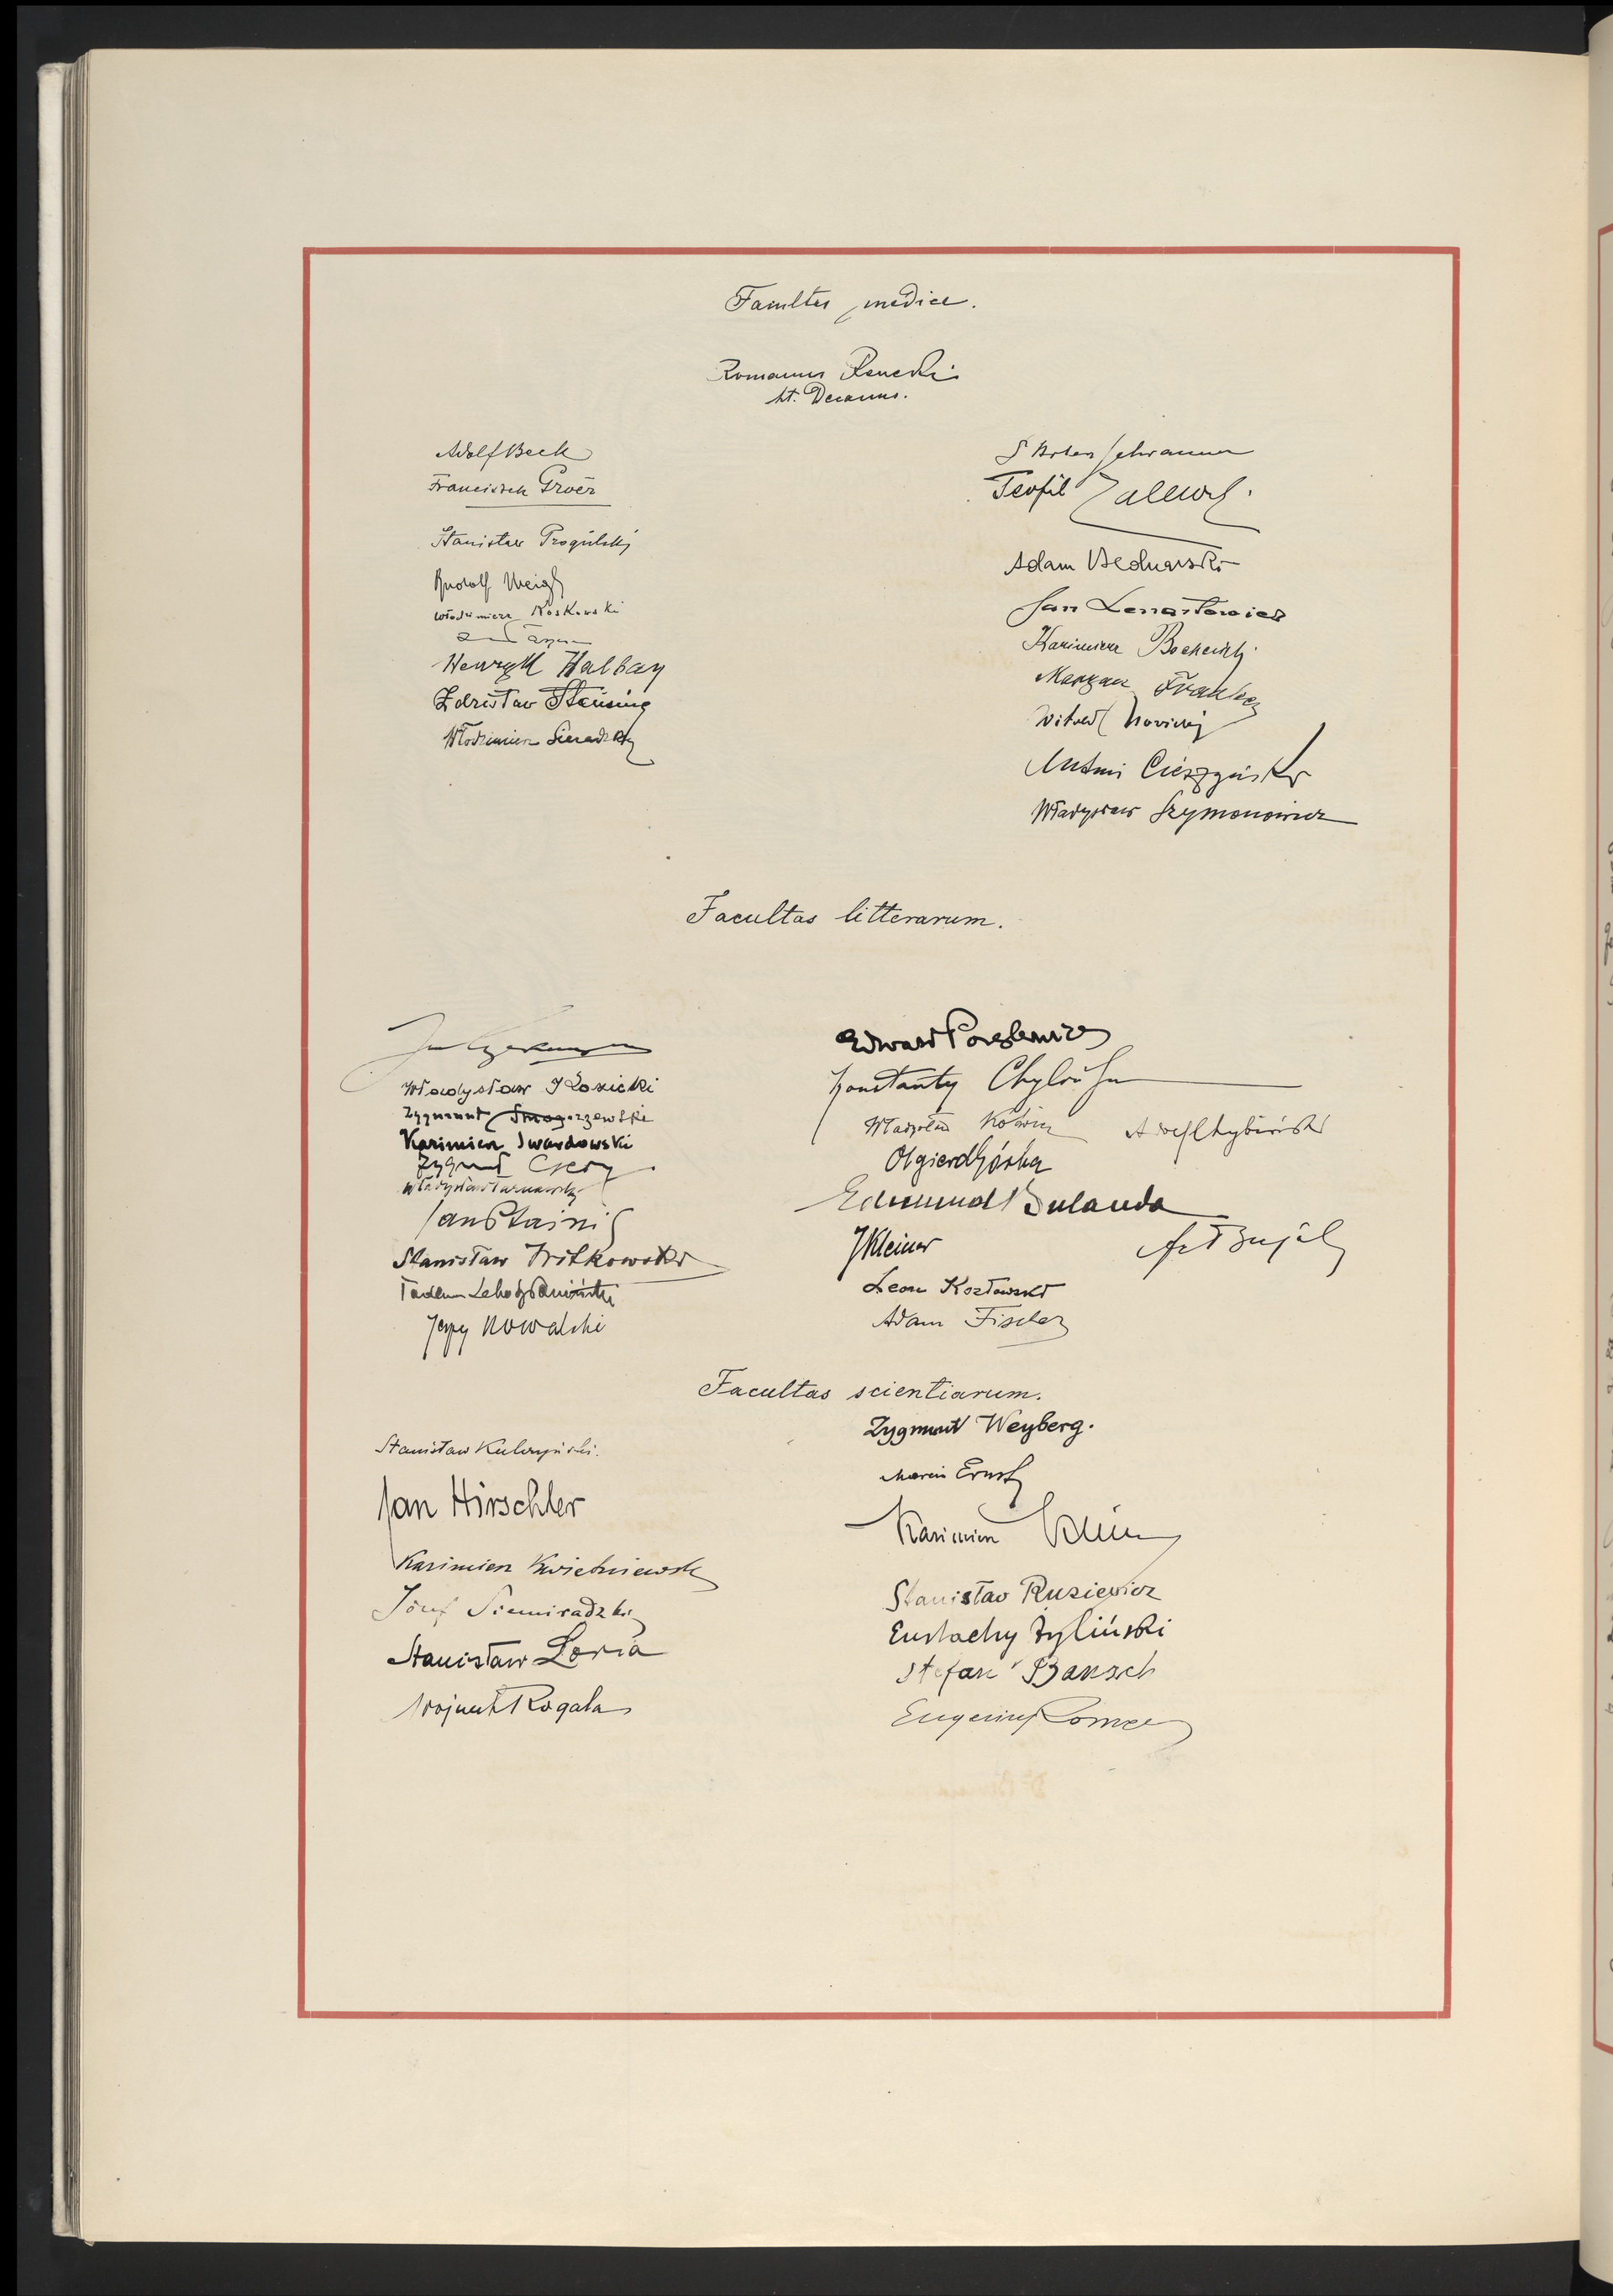 Facultas medica.
Romanus Rencki
h.t. Decanus.
Adolf Beck
Franciszek Groër
Stanisław Progulski
Rudolf Weigl
Włodzimierz Koskowski
Henryk Halban
Zdzisław Steusing
Włodzimierz Sieradzki
Teofil Zalewski
Adam Bednarski
Jan Lenartowicz
Kazimierz Bocheński
Maryan Franke
Witold Nowicki
Antoni Cieszyński
Władysław Szymonowicz
Facultas litterarum.
Jan Czekanowski
Władysław Kozicki
Zygmunt Smogorzewski
Kazimierz Twardowski
Zygmunt Czerny
Władysław Tarnawski
Jan Ptaśnik
Stanisław Witkowski
Tadeusz Lehr-Spławiński
Jerzy Kowalski
Edward Porębowicz
Konstanty Chyliński
Władysław Kotwicz
Adolf Chybiński
Olgierd Górka
Edmund Bulanda
JKleiner
Leon Kozłowski
Adam Fischer
Facultas scientiarum.
Stanisław Kulczyński.
Jan Hirschler
Kazimierz Kwietniewski
Józef Siemiradzki
Stanisław Loria
Wojciech Rogala
Zygmunt Weyberg.
Marcin Ernst
Kazimierz
Stanisław Ruziewicz
Eustachy Żyliński
Stefan Banach
Eugeniusz Romer